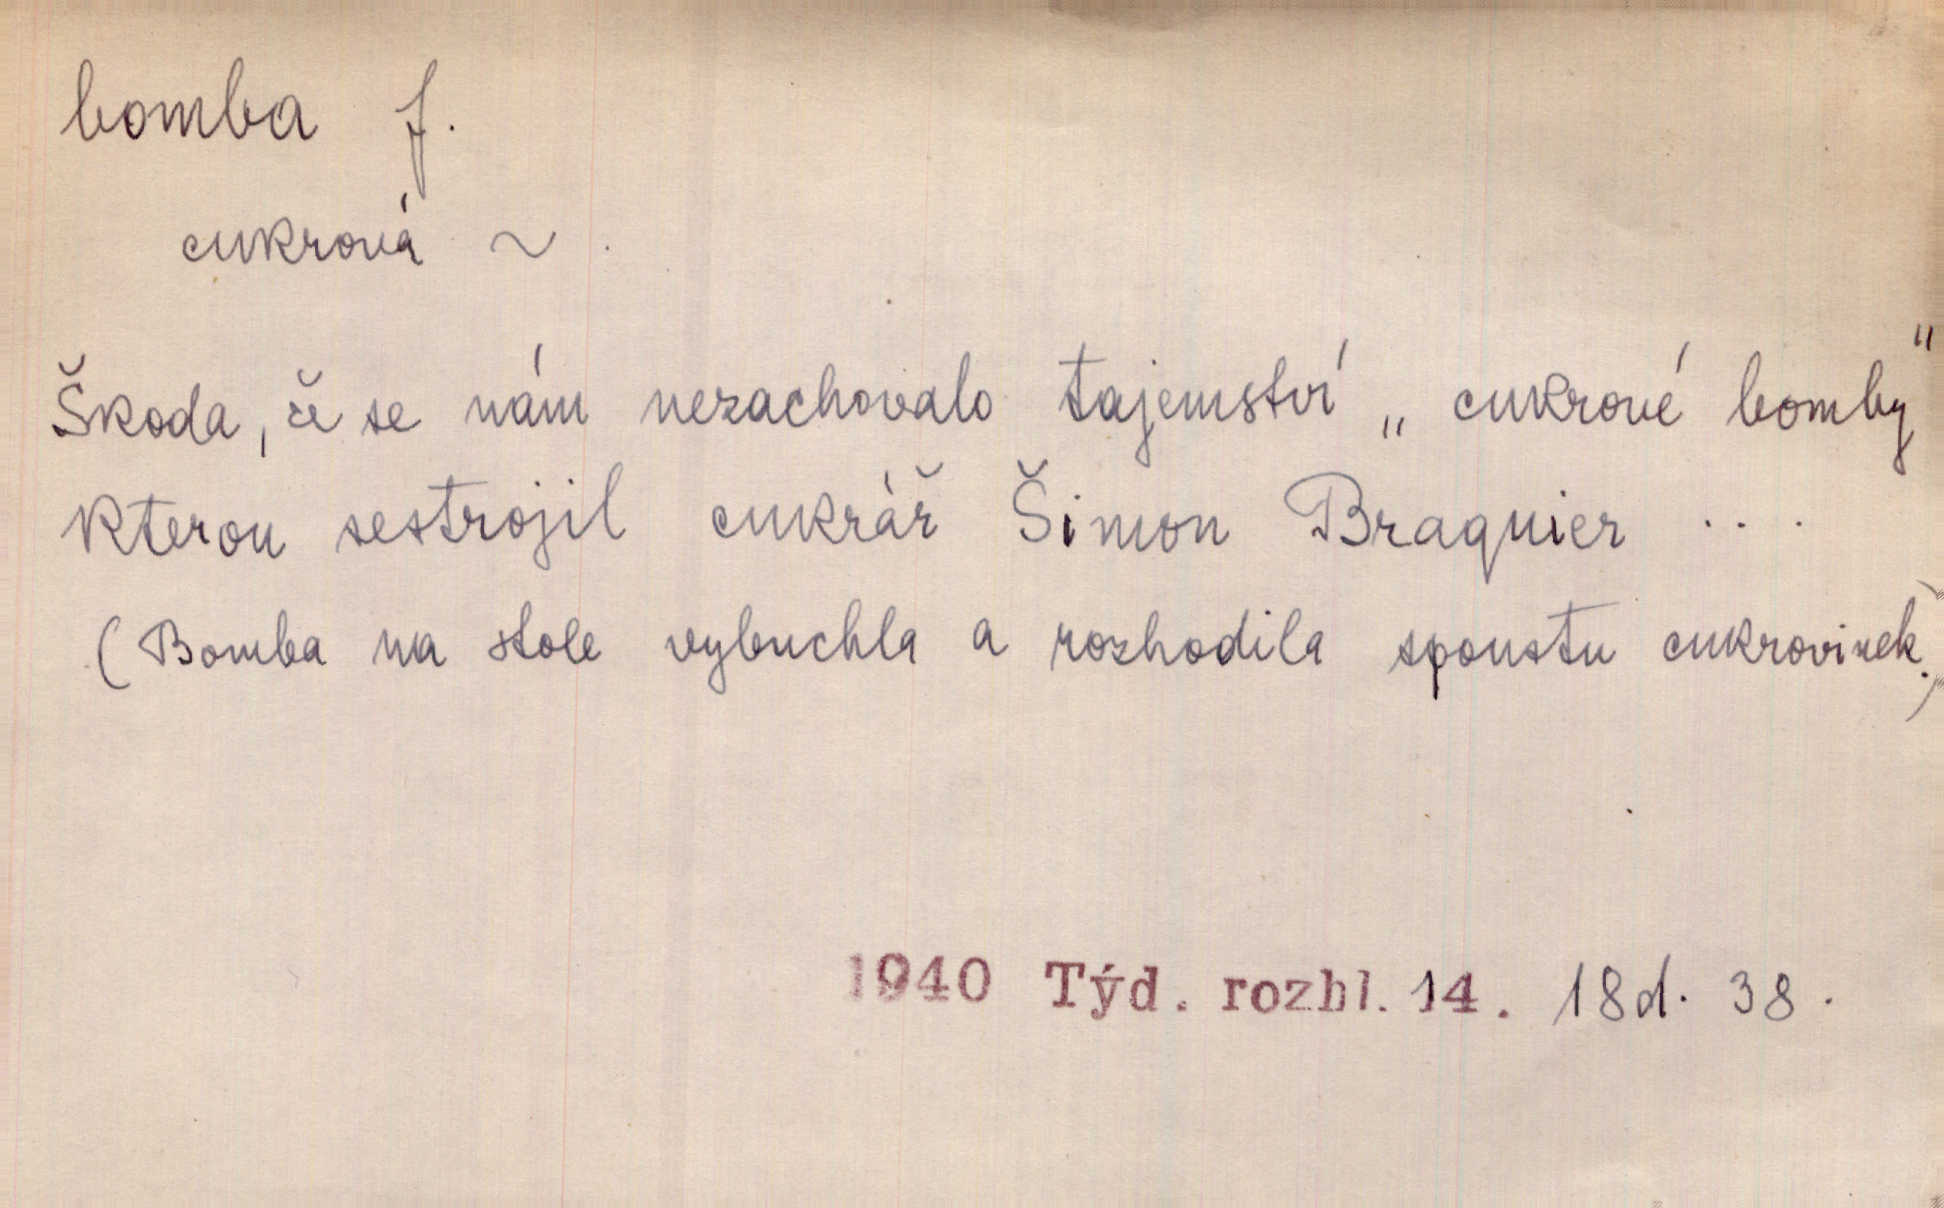 bomba f.
cukrová ~.
Škoda, že se nám nezachovalo tajemství „cukrové bomby“
kterou sestrojil cukrář Šimon Braquier ...
(Bomba na stole vybuchla a rozhodila spoustu cukrovinek.)
1940 Týd. rozhl. 14. 18d. 38.